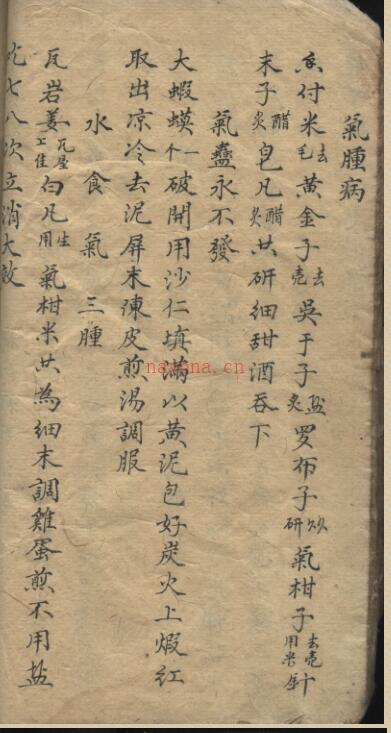 氣腫病
付米去毛黃金子去壳吳于子盐炙罗布子炒研氣柑子去壳用米針
末子醋炙皂凡醋炙共研細甜酒吞下
氣蠱永不發
大蝦蟆一个破開用沙仁填滿以黃泥包好炭火上煆紅
取出凉冷去泥屏末陳皮煎湯調服
水食氣三腫
瓦岩姜瓦屋上佳白凡生用氣柑米共為細末調雞蛋煎不用盐
吃七八次立消大效
nayona.cn